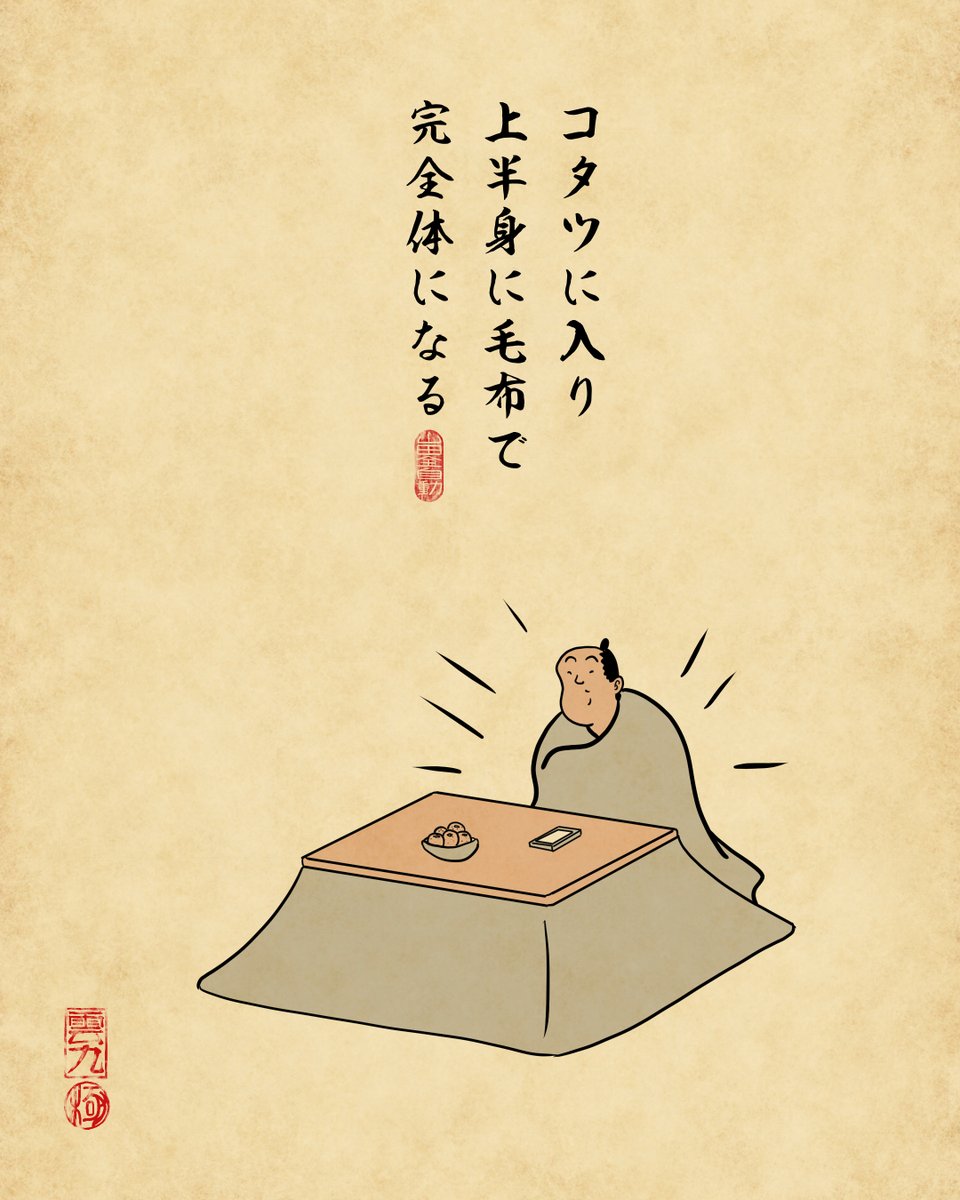 コタツに入り
上半身に毛布で
完全体になる